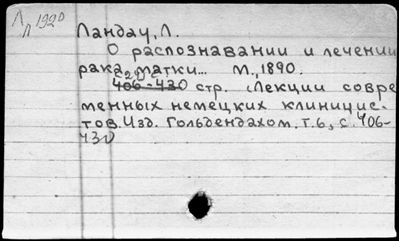 Л
Л 1920
Ландау, Л.
О распознавании и лечении
рака матки... М., 1890.
с 29
406-430 стр. (Лекции совре
менных немецких клиницис-
тов. Изд. Гольдендахом, т. 6, с. 406-
430